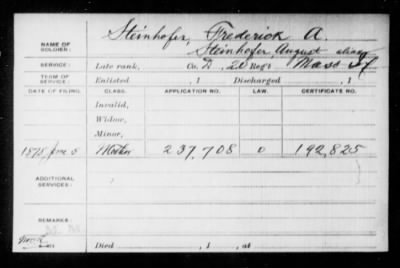 Steinhofer, Frederick A.
NAME OF SOLDIER: Steinhofer, August alias
SERVICE: Late rank, Co. D, 20 Reg't Mass Inf
TERM OF SERVICE: Enlisted , 1 Discharged , 1
DATE OF FILING. CLASS. APPLICATION NO. LAW. CERTIFICATE NO.
Invalid,
Widow,
Minor,
1875 June 5 Mother 237,708 0 192,825
ADDITIONAL SERVICES:
REMARKS:
Died , 1 , at